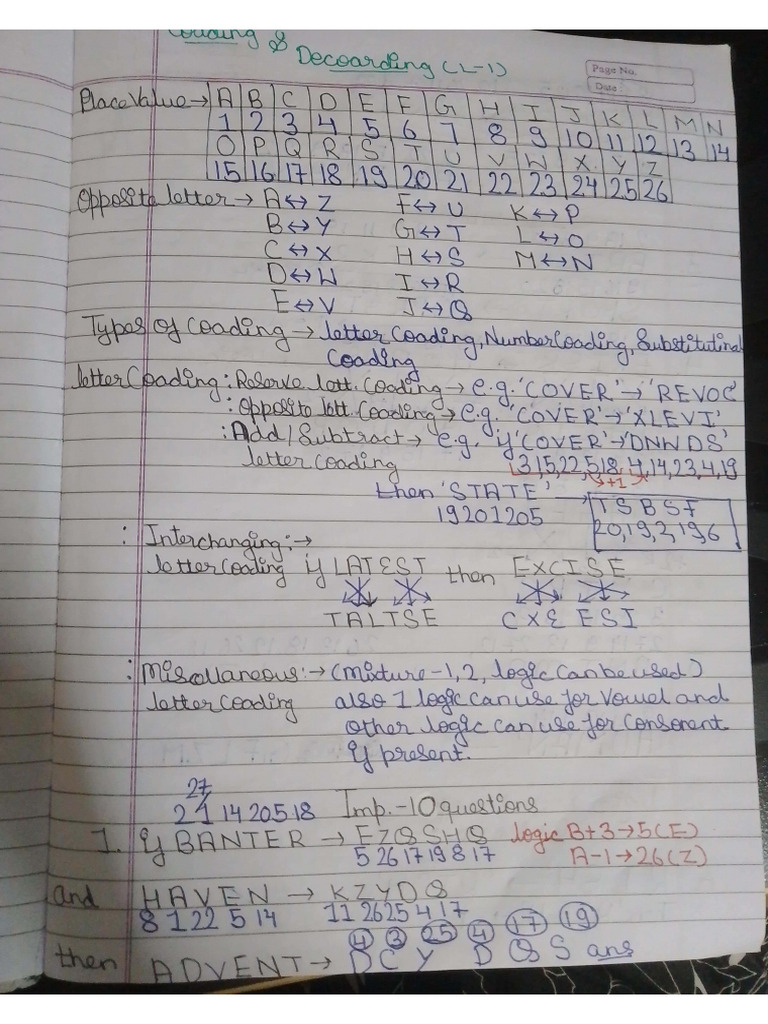 Coading &
Decoarding (L-1)
Page No.
Date
Place Value → A B C D E F G H I J K L M N
1 2 3 4 5 6 7 8 9 10 11 12 13 14
O P Q R S T U V W X Y Z
15 16 17 18 19 20 21 22 23 24 25 26
Opposite letter → A ↔ Z F ↔ U K ↔ P
B ↔ Y G ↔ T L ↔ O
C ↔ X H ↔ S M ↔ N
D ↔ W I ↔ R
E ↔ V J ↔ Q
Types of Coading → letter Coading, Number Coading, Substitutinal
Coading
letter Coading : Reserve lett. Coading → e.g. 'COVER' → 'REVOC'
: Opposite lett. Coading → e.g. 'COVER' → 'XLEVI',
: Add / Subtract → e.g. if 'COVER' → 'DNWDS'
letter coading 3,15,22,5,18, 4,14,23,4,19
+1
then 'STATE' → TSBSF
19 20 1 20 5 20,19,2,19,6
: Interchanging : →
letter coading if LATEST then EXCISE
TALTSE CXE ESI
: Misollaneous : → (mixture - 1, 2, logic can be used)
letter coading also 1 logic can use for vowel and
other logic can use for consonent
if present.
27
2 1 14 20 5 18 Imp. - 10 questions
1. if BANTER → EZQSHQ logic B+3 → 5(E)
5 26 17 19 8 17 A-1 → 26(Z)
and HAVEN → KZYDQ
8 1 22 5 14 11 26 25 4 17
4 3 25 4 17 19
then ADVENT → D C Y D Q S ans